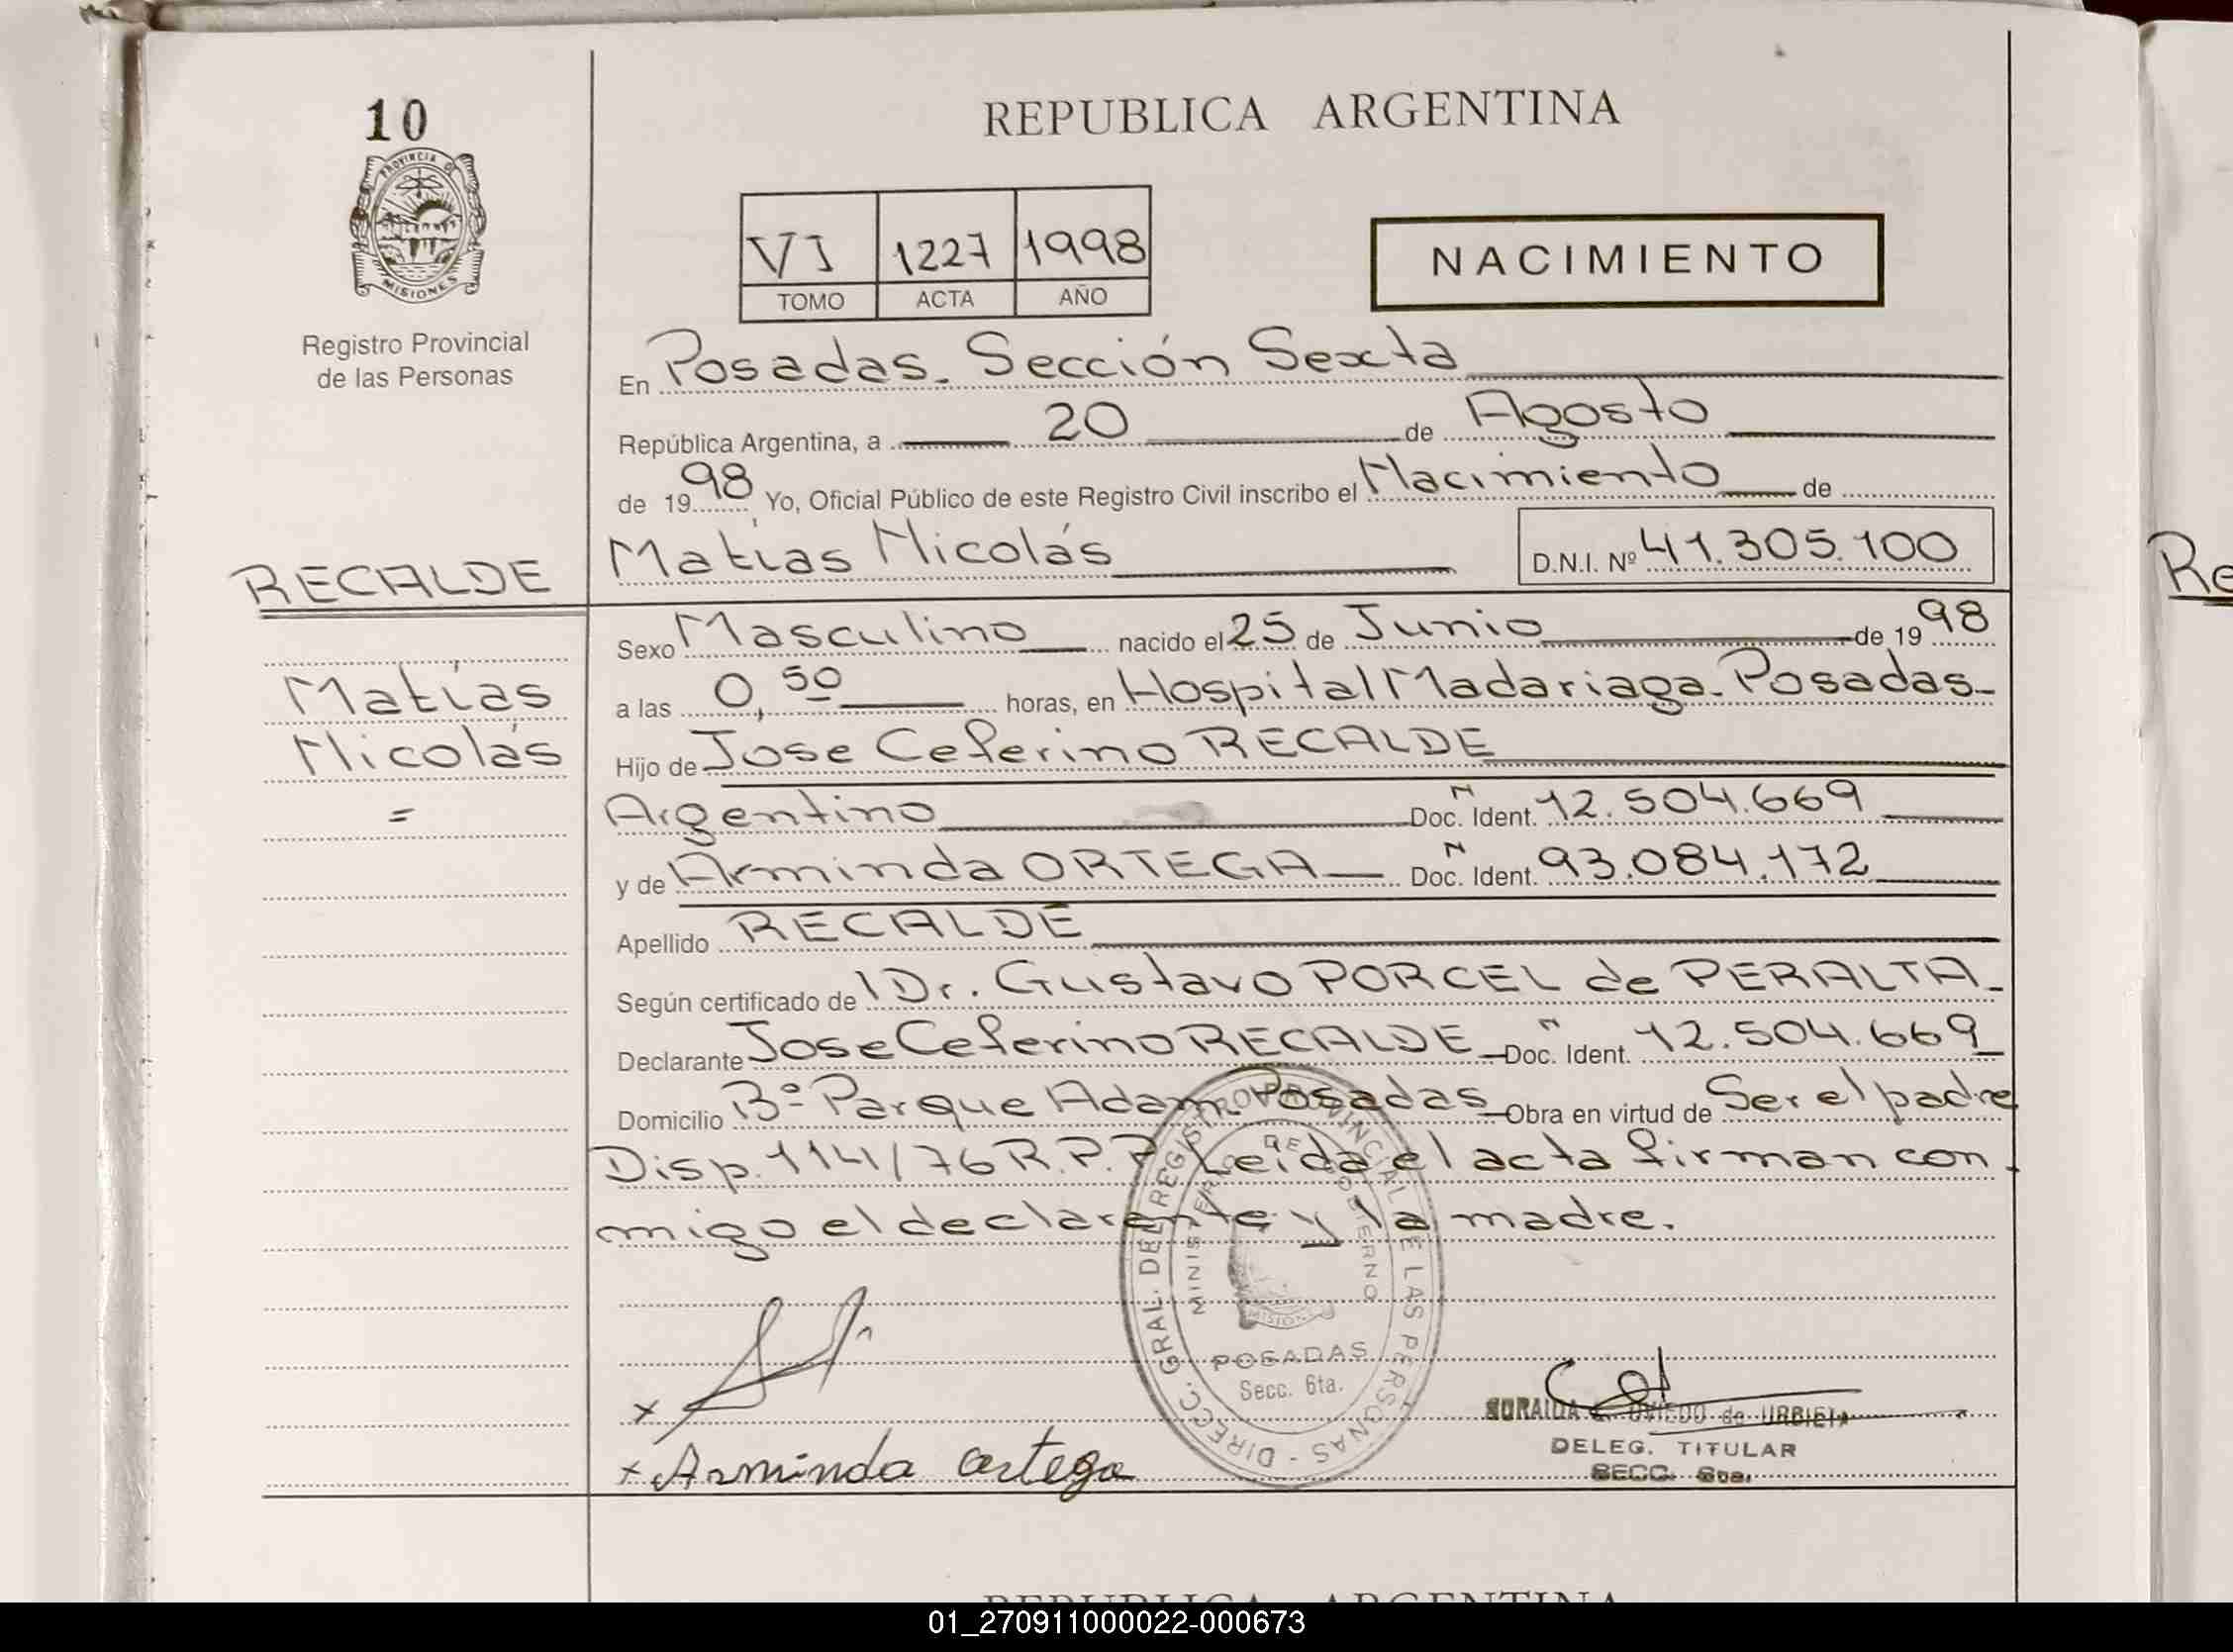 10
PROVINCIA DE
MISIONES
Registro Provincial
de las Personas
REPUBLICA ARGENTINA
VI 1227 1998
TOMO ACTA AÑO
NACIMIENTO
En Posadas. Sección Sexta
República Argentina, a 20 de Agosto
de 1998 Yo, Oficial Público de este Registro Civil inscribo el Nacimiento de
RECALDE Matías Nicolás D.N.I. Nº 41.305.100
Sexo Masculino nacido el 25 de Junio de 1998
Matías a las 0,50 horas, en Hospital Madariaga. Posadas
Nicolás Hijo de Jose Ceferino RECALDE
= Argentino Doc. N Ident. 12.504.669
y de Arminda ORTEGA Doc. N Ident. 93.084.172
Apellido RECALDE
Según certificado del Dr. Gustavo PORCEL de PERALTA
Declarante Jose Ceferino RECALDE Doc. N Ident. 12.504.669
Domicilio Bº Parque Adam. Posadas Obra en virtud de Ser el padre
Disp. 114/76 R.P.P. Leída el acta firman con
migo el declarante y la madre.
DIRECC. GRAL. DEL REGISTRO PROVINCIAL DE LAS PERSONAS -
MINISTERIO DE GOBIERNO
POSADAS
Secc. 6ta.
x
x Arminda Ortega
OVIEDO de URBIETA
DELEG. TITULAR
SECC.
Re
REPUBLICA ARGENTINA
01_270911000022-000673